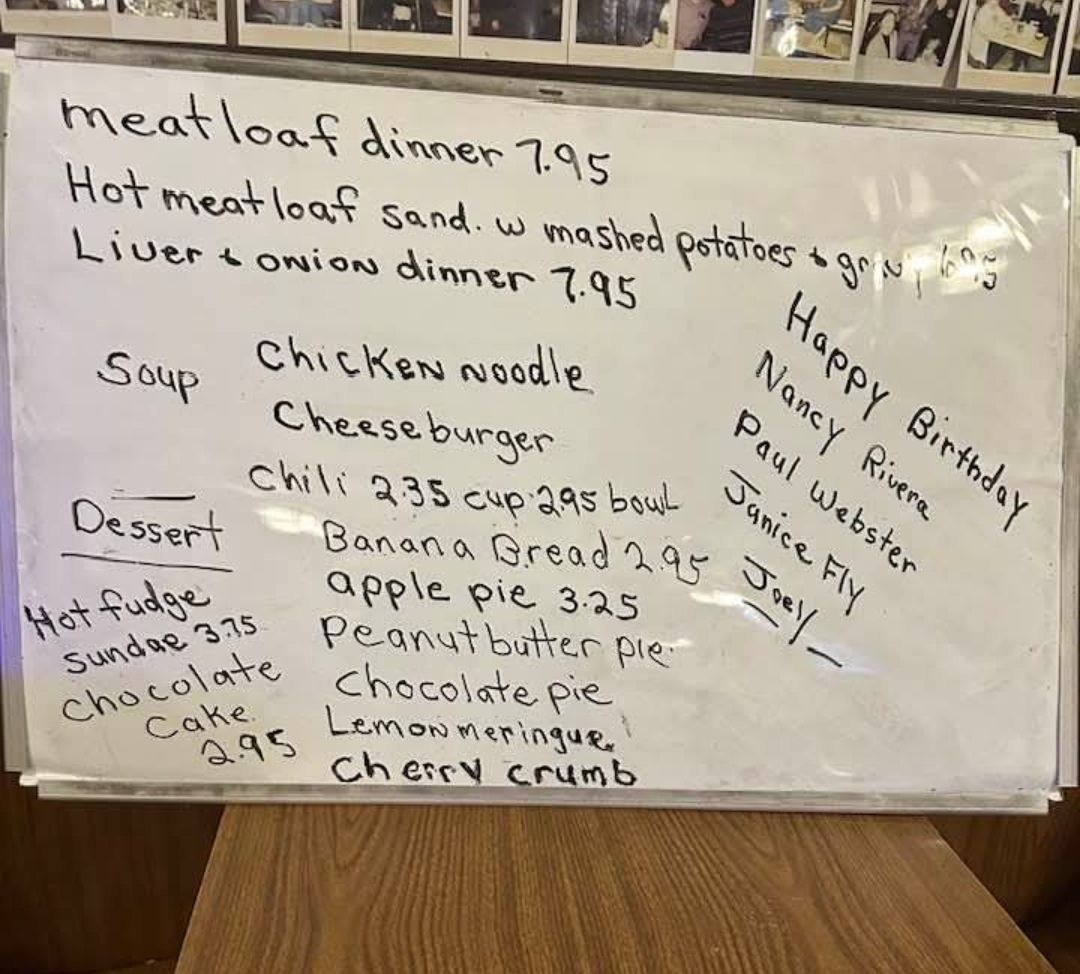 meatloaf dinner 7.95
Hot meatloaf sand. w mashed potatoes & gravy 6.95
Liver & onion dinner 7.95
Soup
Chicken Noodle
Cheeseburger
Chili 2.35 cup 2.95 bowl
Dessert
Hot fudge
sundae 3.75
chocolate
Cake
2.95
Banana Bread 2.95
apple pie 3.25
Peanut butter pie
Chocolate pie
Lemon meringue
Cherry crumb
Happy Birthday
Nancy Rivera
Paul Webster
Janice Fly
Joey